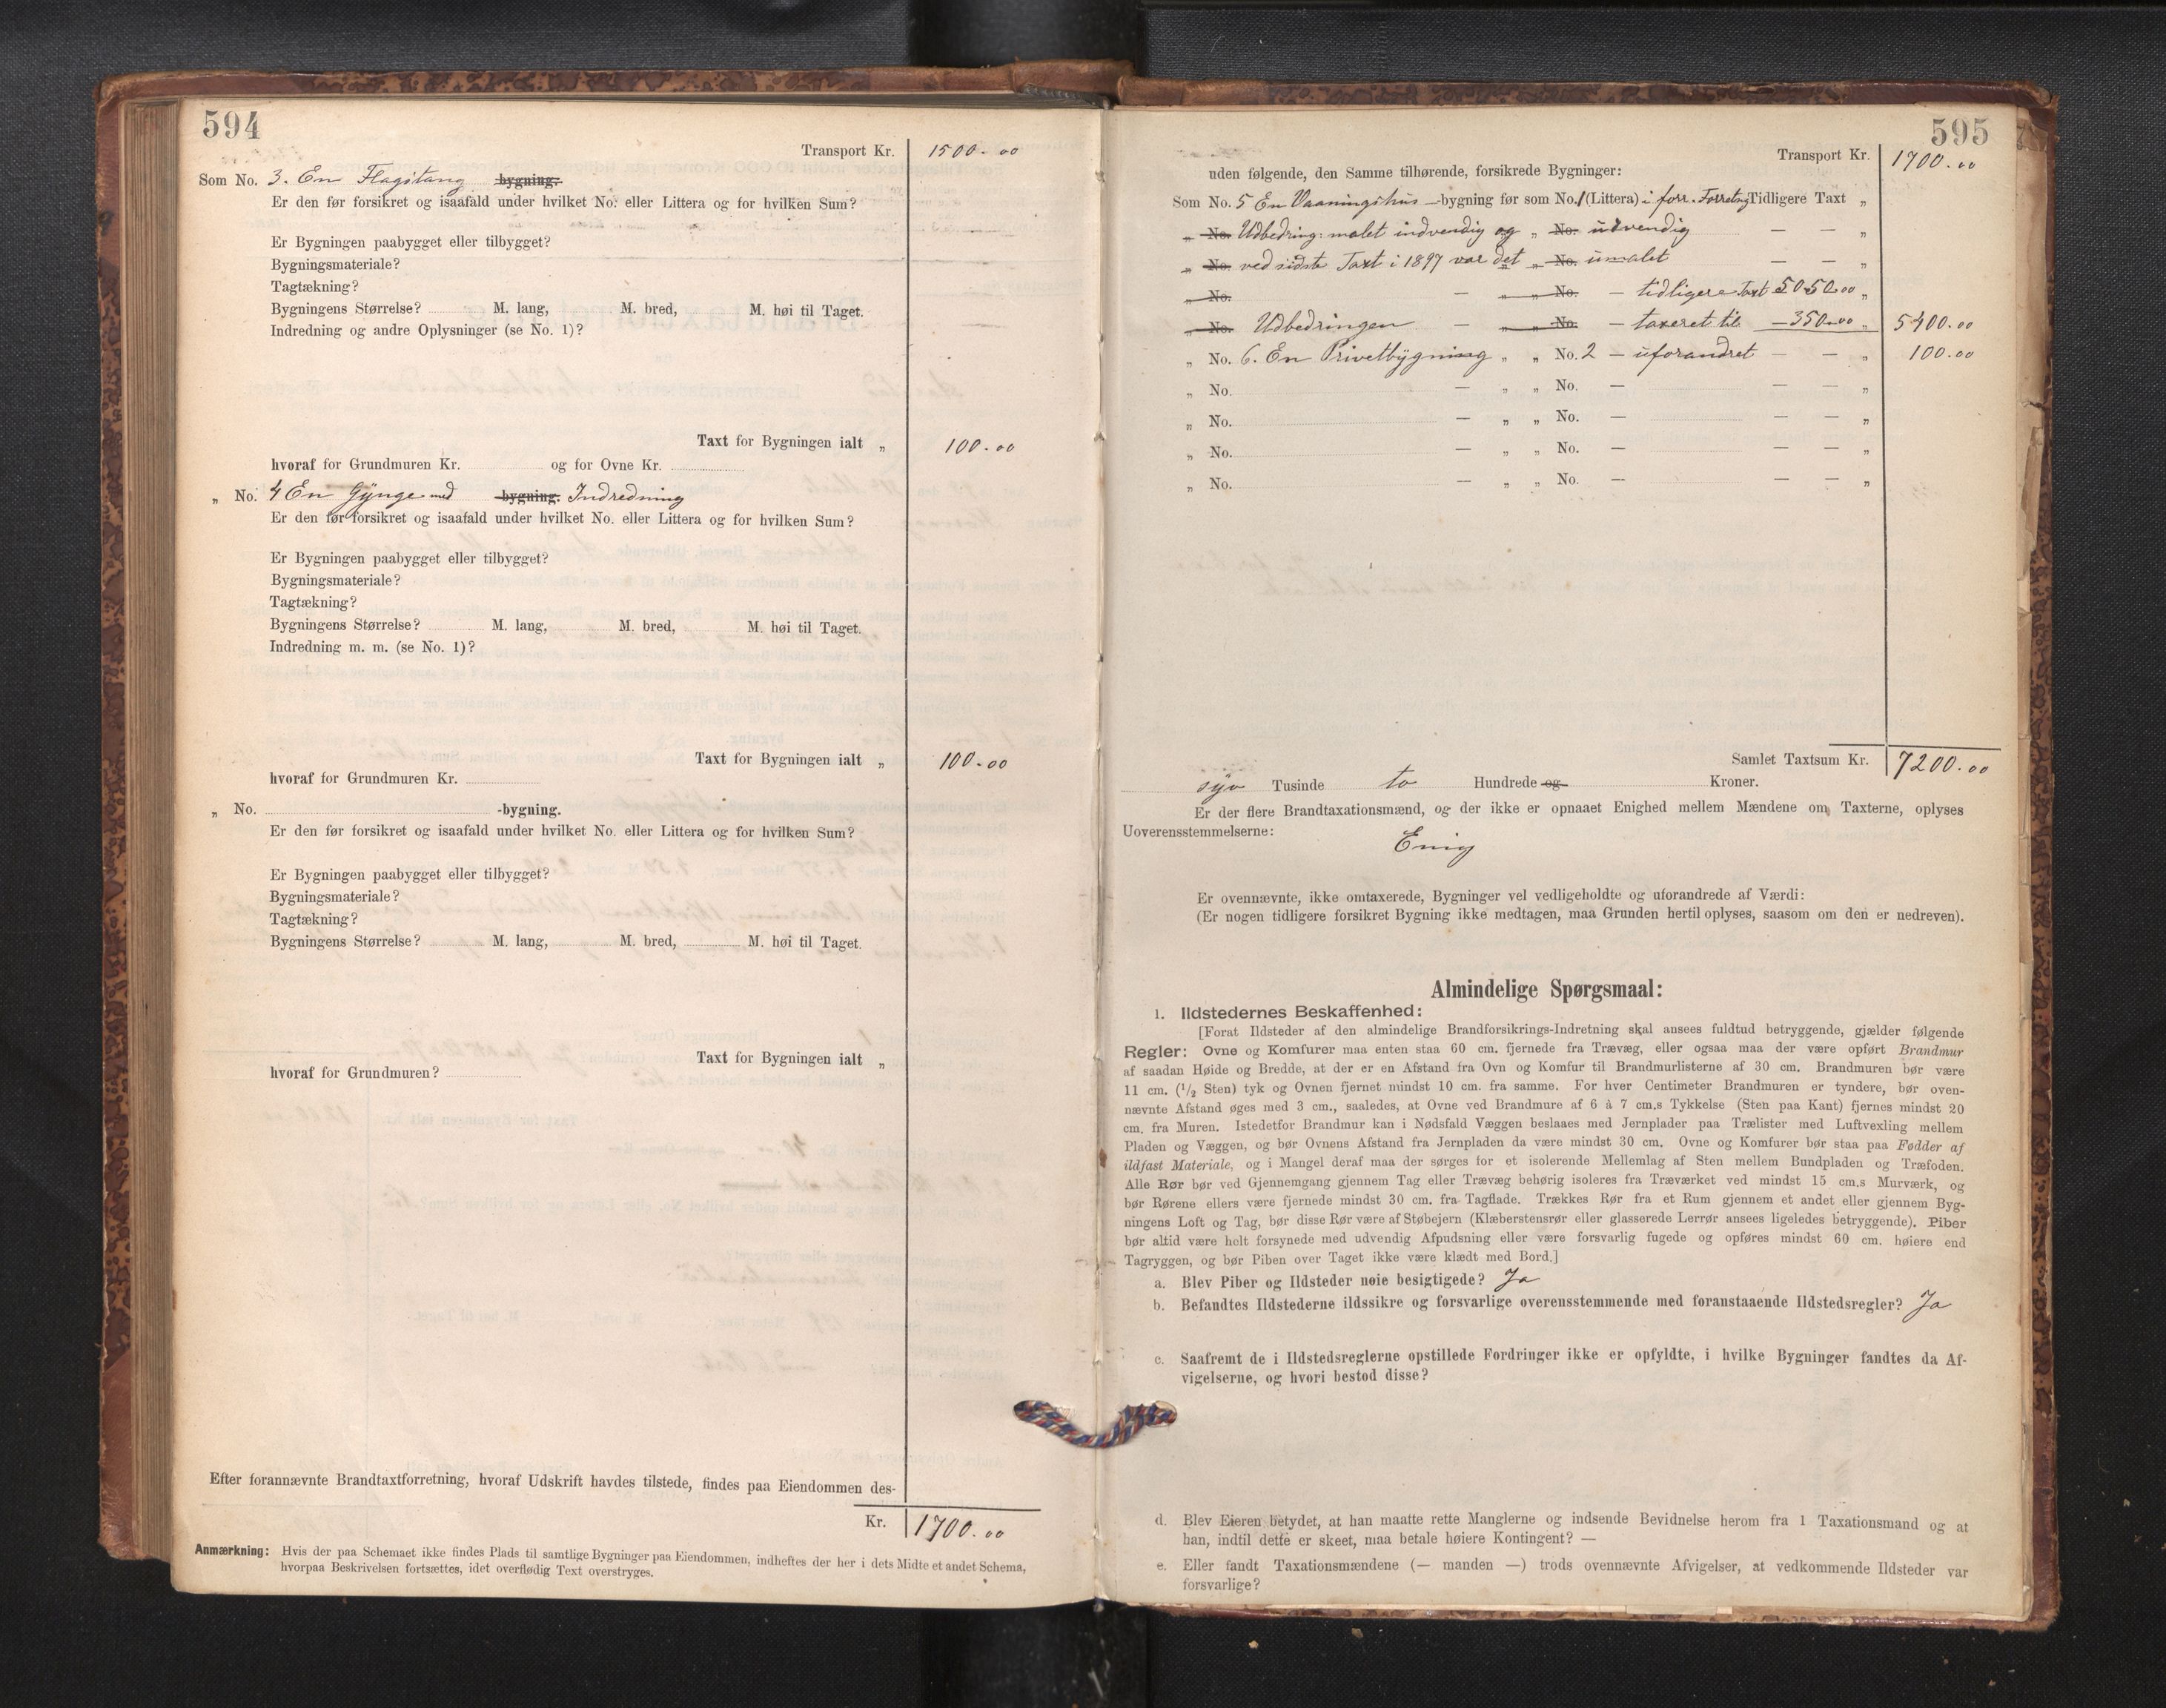 594
Transport Kr. 1500.00
Som No. 3. En Flagstang bygning.
Er den før forsikret og isaafald under hvilket No. eller Littera og for hvilken Sum?
Er Bygningen paabygget eller tilbygget?
Bygningsmateriale?
Tagtækning?
Bygningens Størrelse? M. lang, M. bred, M. høi til Taget.
Indredning og andre Oplysninger (se No. 1)?
Taxt for Bygningen ialt „ 100.00
hvoraf for Grundmuren Kr. og for Ovne Kr.
„ No. 4 En Gynge med bygning. Indredning
Er den før forsikret og isaafald under hvilket No. eller Littera og for hvilken Sum?
Er Bygningen paabygget eller tilbygget?
Bygningsmateriale?
Tagtækning?
Bygningens Størrelse? M. lang, M. bred, M. høi til Taget.
Indredning m. m. (se No. 1)?
Taxt for Bygningen ialt „ 100.00
hvoraf for Grundmuren Kr.
„ No. -bygning.
Er den før forsikret og isaafald under hvilket No. eller Littera og for hvilken Sum?
Er Bygningen paabygget eller tilbygget?
Bygningsmateriale?
Tagtækning?
Bygningens Størrelse? M. lang, M. bred, M. høi til Taget.
Taxt for Bygningen ialt „
hvoraf for Grundmuren?
Efter forannævnte Brandtaxtforretning, hvoraf Udskrift havdes tilstede, findes paa Eiendommen des-
Kr. 1700.00
Anmærkning: Hvis der paa Schemaet ikke findes Plads til samtlige Bygninger paa Eiendommen, indheftes der her i dets Midte et andet Schema,
hvorpaa Beskrivelsen fortsættes, idet overflødig Text overstryges.
595
Transport Kr. 1700.00
uden følgende, den Samme tilhørende, forsikrede Bygninger:
Som No. 5 En Vaaningshus -bygning før som No. 1 (Littera) i forr. Forretng Tidligere Taxt „
„ No. Udbedring: malet indvendig og „ No. udvendig — — „
„ No. ved sidste Taxt i 1897 var det „ No. umalet — — „
„ No. — „ „ No. — tidligere Taxt 5050.00 „
„ No. Udbedringen — „ „ No. — taxeret til — 350.00 „ 5400.00
„ No. 6. En Privetbygning „ „ No. 2 — uforandret — — „ 100.00
„ No. — „ „ No. — — — „
„ No. — „ „ No. — — — „
„ No. — „ „ No. — — — „
„ No. — „ „ No. — — — „
Samlet Taxtsum Kr. 7200.00
syv Tusinde to Hundrede og Kroner.
Er der flere Brandtaxationsmænd, og der ikke er opnaaet Enighed mellem Mændene om Taxterne, oplyses
Uoverensstemmelserne:
Enig
Er ovennævnte, ikke omtaxerede, Bygninger vel vedligeholdte og uforandrede af Værdi:
(Er nogen tidligere forsikret Bygning ikke medtagen, maa Grunden hertil oplyses, saasom om den er nedreven).
Almindelige Spørgsmaal:
1. Ildstedernes Beskaffenhed:
[Forat Ildsteder af den almindelige Brandforsikrings-Indretning skal ansees fuldtud betryggende, gjælder følgende
Regler: Ovne og Komfurer maa enten staa 60 cm. fjernede fra Trævæg, eller ogsaa maa der være opført Brandmur
af saadan Høide og Bredde, at der er en Afstand fra Ovn og Komfur til Brandmurlisterne af 30 cm. Brandmuren bør være
11 cm. (1/2 Sten) tyk og Ovnen fjernet mindst 10 cm. fra samme. For hver Centimeter Brandmuren er tyndere, bør oven-
nævnte Afstand øges med 3 cm., saaledes, at Ovne ved Brandmure af 6 à 7 cm.s Tykkelse (Sten paa Kant) fjernes mindst 20
cm. fra Muren. Istedetfor Brandmur kan i Nødsfald Væggen beslaaes med Jernplader paa Trælister med Luftvexling mellem
Pladen og Væggen, og bør Ovnens Afstand fra Jernpladen da være mindst 30 cm. Ovne og Komfurer bør staa paa Fødder af
ildfast Materiale, og i Mangel deraf maa der sørges for et isolerende Mellemlag af Sten mellem Bundpladen og Træfoden.
Alle Rør bør ved Gjennemgang gjennem Tag eller Trævæg behørig isoleres fra Træværket ved mindst 15 cm.s Murværk, og
bør Rørene ellers være fjernede mindst 30 cm. fra Tagflade. Trækkes Rør fra et Rum gjennem et andet eller gjennem Byg-
ningens Loft og Tag, bør disse Rør være af Støbejern (Klæberstensrør eller glasserede Lerrør ansees ligeledes betryggende). Piber
bør altid være helt forsynede med udvendig Afpudsning eller være forsvarlig fugede og opføres mindst 60 cm. høiere end
Tagryggen, og bør Piben over Taget ikke være klædt med Bord.]
a. Blev Piber og Ildsteder nøie besigtigede? Ja
b. Befandtes Ildstederne ildssikre og forsvarlige overensstemmende med foranstaaende Ildstedsregler? Ja
c. Saafremt de i Ildstedsreglerne opstillede Fordringer ikke er opfyldte, i hvilke Bygninger fandtes da Af-
vigelserne, og hvori bestod disse?
d. Blev Eieren betydet, at han maatte rette Manglerne og indsende Bevidnelse herom fra 1 Taxationsmand og at
han, indtil dette er skeet, maa betale høiere Kontingent? —
e. Eller fandt Taxationsmændene (— manden —) trods ovennævnte Afvigelser, at vedkommende Ildsteder var
forsvarlige?